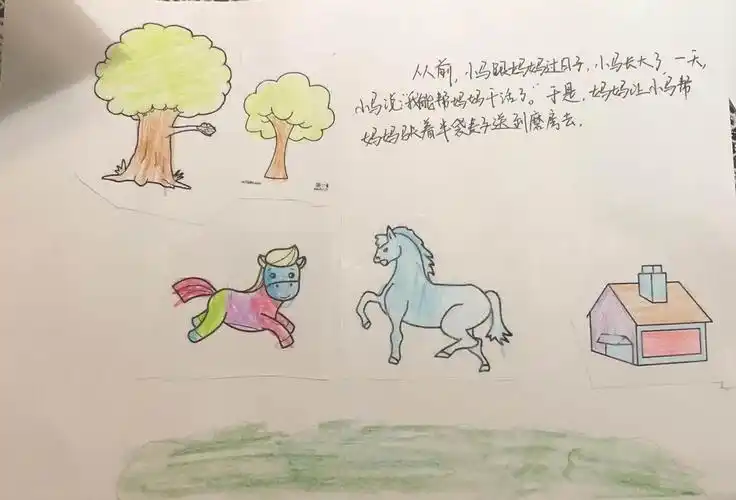 从前,小马跟妈妈过日子,小马长大了,一天,
小马说“我能帮妈妈干活了。”于是,妈妈让小马帮
妈妈驮着半袋麦子送到磨房去.